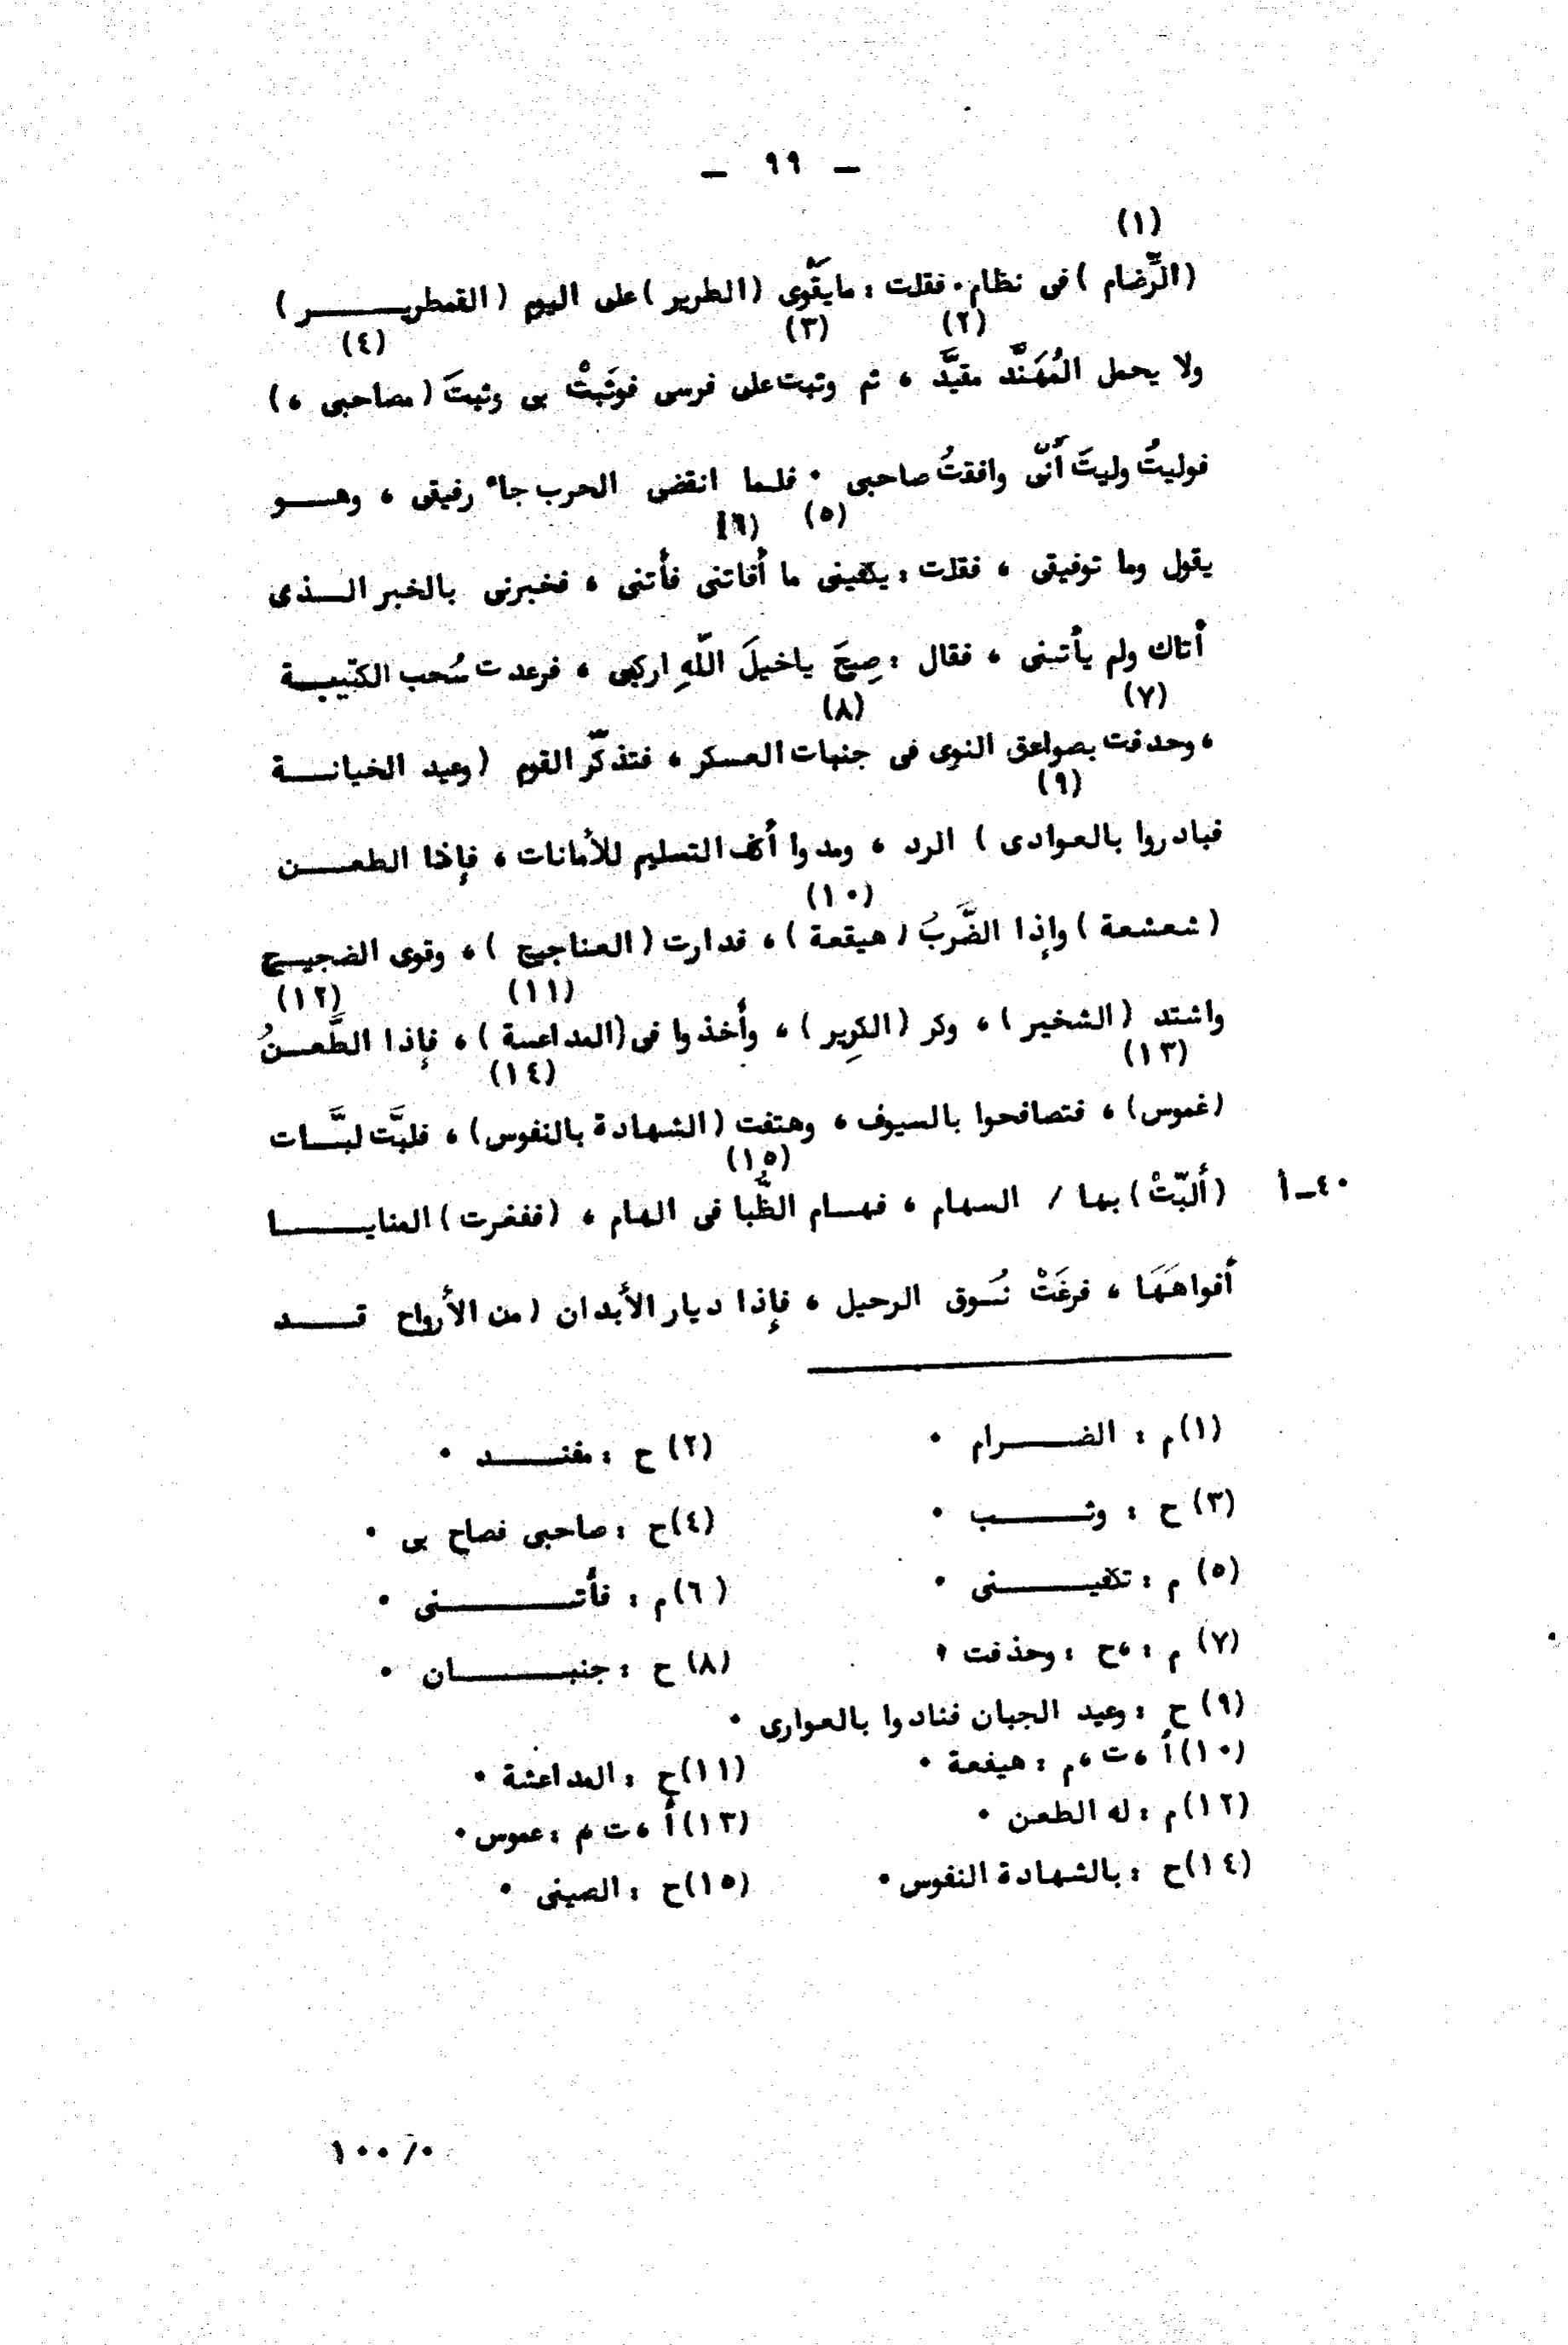 — ٩٩ —
(١)
(الرِّضام) فى نظام. فقلت : مايقْوى (الطرير) على اليوم (القمطريـــر)
(٢) (٣) (٤)
ولا يحمل المُهَنَّد مقيَّد ، ثم وثبت على فرسى فوثَبتْ بى وثبتَ (مصاحبى ،)
فوليتُ وليتَ أنّى وافقتُ صاحبى . فلما انقضى الحرب جاء رفيقى ، وهـــو
(٥) (٦)
يقول وما توفيقى ، فقلت : يكفينى ما أفاتنى فأتنى ، فخبرنى بالخبر الــذى
أتاك ولم يأتنى ، فقال : صِيحَ ياخيلَ اللّهِ اركبى ، فرعدت سُحب الكتيبــة
(٧) (٨)
، وحدفت بصواعق النوى فى جنبات العسكر ، فتذكّر القوم (وعيد الخيانــة
(٩)
فبادروا بالعوادى) الرد ، ومدوا أكف التسليم للأمانات ، فإذا الطعـــن
(١٠)
(شعشعة) وإذا الضَّربُ (هيقعة) ، فدارت (العناجيج) ، وقوى الضجيــج
(١١) (١٢)
واشتد (الشخير) ، وكر (الكرِير) ، وأخذوا فى (المداعسة) ، فإذا الطَّعــنُ
(١٣) (١٤)
(غموس) ، فتصافحوا بالسيوف ، وهتفت (الشهادة بالنفوس) ، فلبَّت لبَّــات
(١٥)
٤٠ـ أ (ألبّتْ) بها / السهام ، فهـام الظُّبا فى الهام ، (ففغرت) المنايــــا
أفواهَهَا ، فرغَتْ نُسوق الرحيل ، فإذا ديار الأبدان (من الأرواح قــــد
(١) م : الضــــرام . (٢) ح : مفنــــد .
(٣) ح : وثــــب . (٤) ح : صاحبى فصاح بى .
(٥) م : تكفيــــنى . (٦) م : فأتــــنى .
(٧) م : ،ح : وحذفت . (٨) ح : جنبــــان .
(٩) ح : وعيد الجبان فنادوا بالعوارى .
(١٠) أ ،ت ،م : هيفعة . (١١) ح : المداعشة .
(١٢) م : له الطعن . (١٣) أ ،ت ،م : عموس .
(١٤) ح : بالشهادة النفوس . (١٥) ح : الصينى .
١٠٠/٠